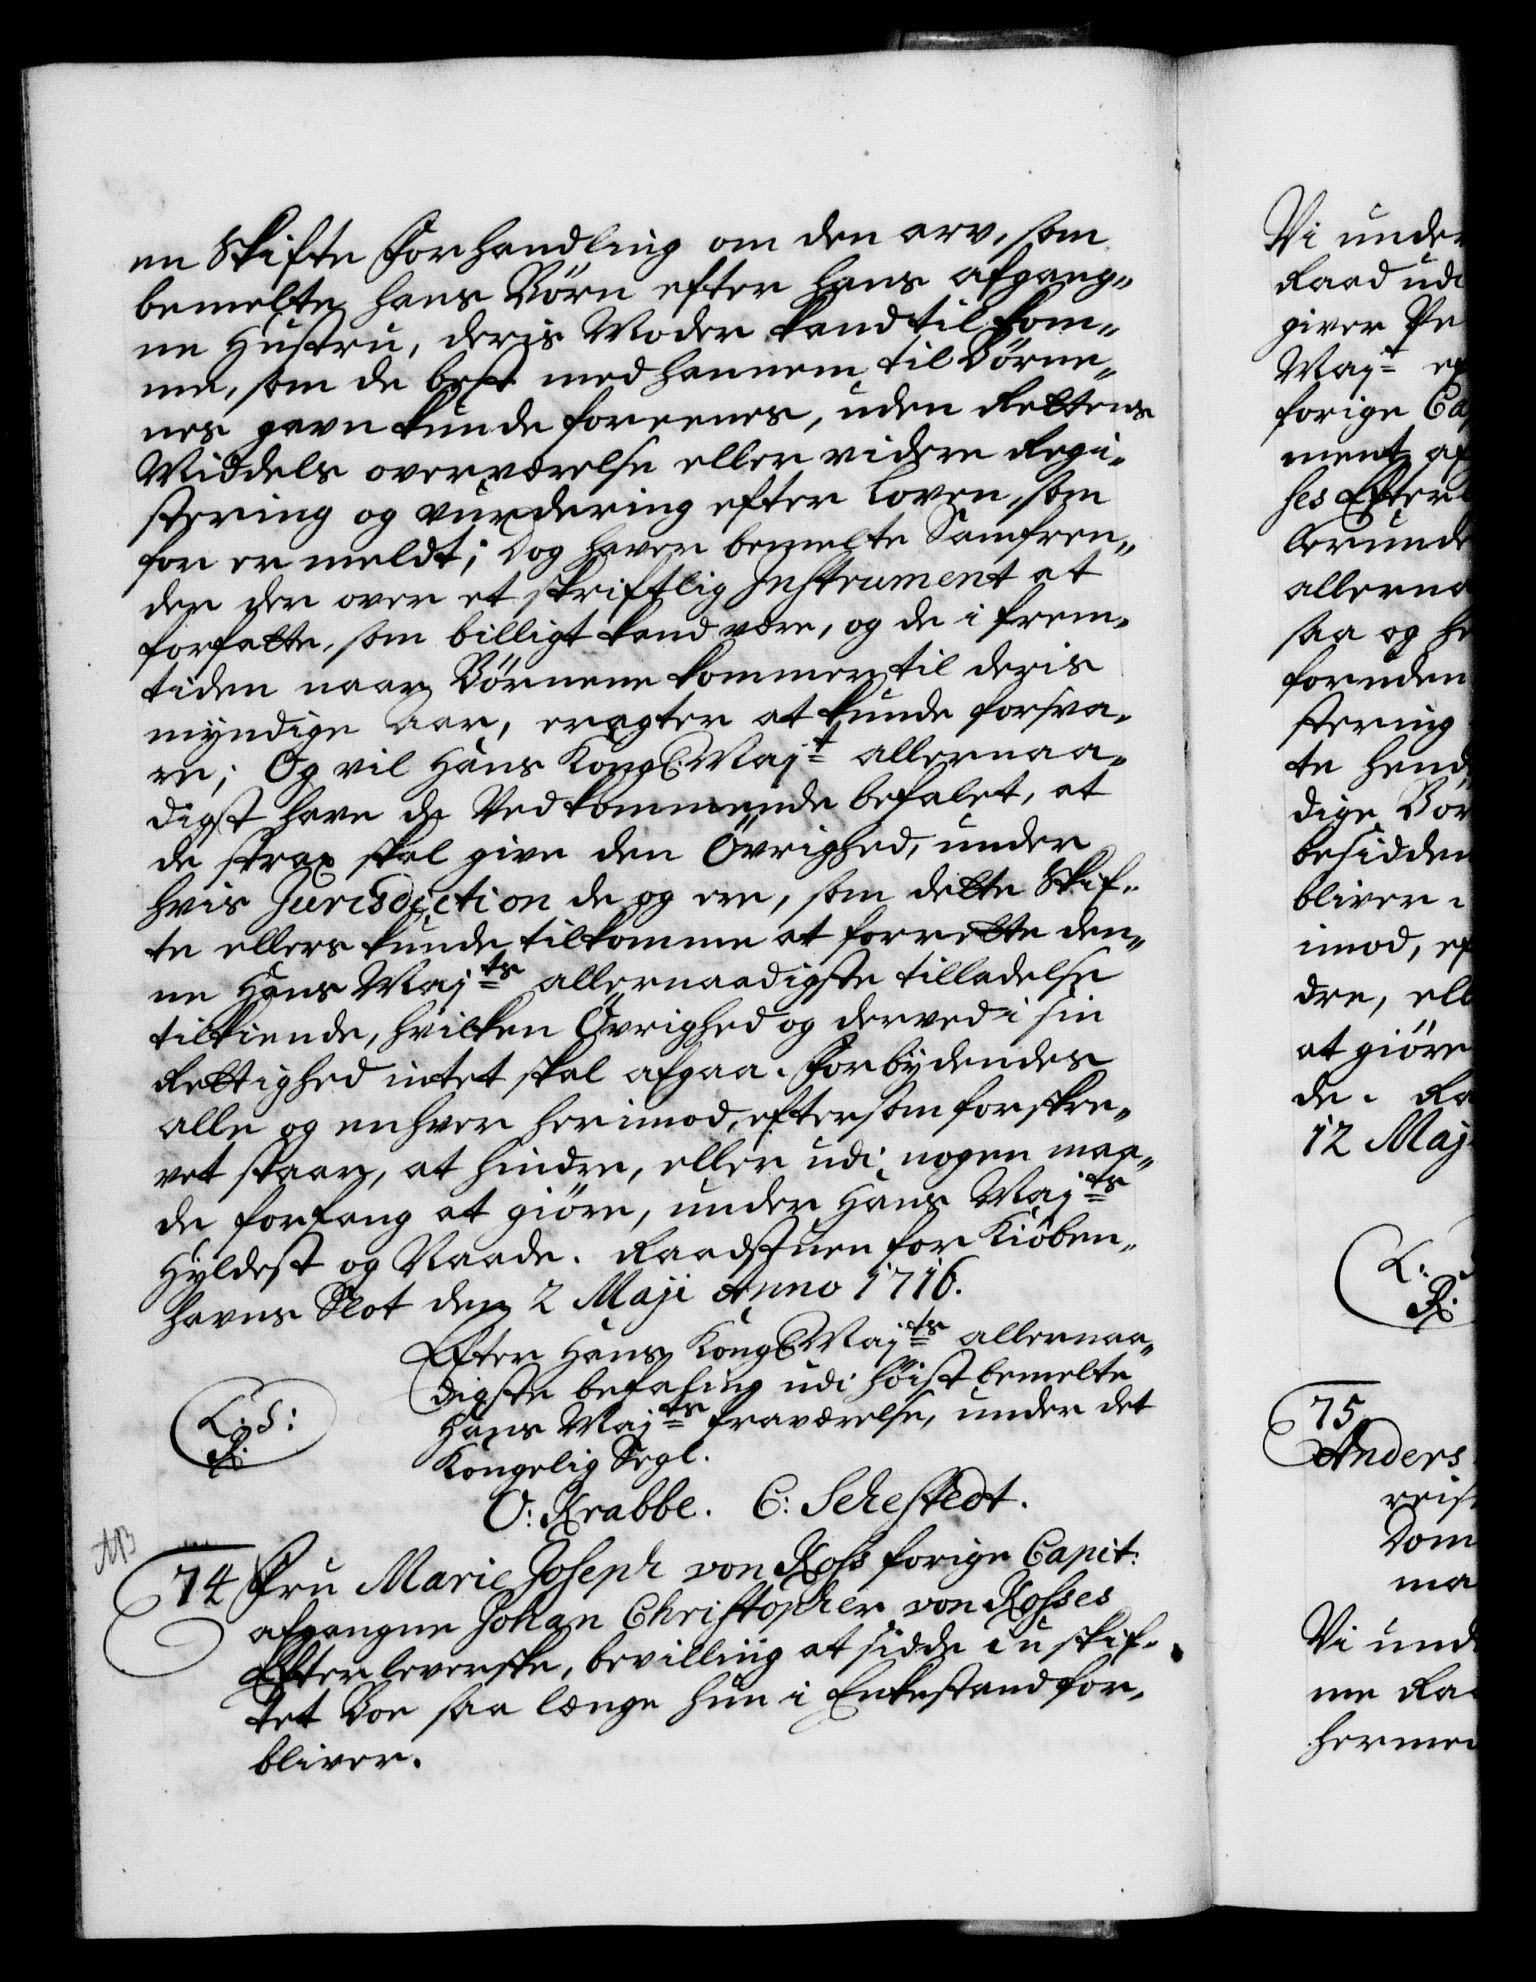 en Skifte Forhandling om den arv, som
bemelte hans Börn efter hans afgang-
ne Hustru, deris Moder kand tilkom-
me, som de best med hannem til Börne-
nes gavn kunde foreenes, uden Rettens
Middels overværelse eller videre Regi-
stering og vurdering efter Loven, som
for er meldt; Dog haver bemelte Samfren-
der der over et skriftlig Instrument at
forfatte, som billigt kand være, og de i frem-
tiden naar Börnene kommer til deris
myndige aar, eragter at kunde forsva-
re; Og vil Hans Kongl. Majt allernaa-
digst have de Vedkommende befalet, at
de strax skal give den Övrighed, under
hvis Jurisdiction de og ere, som dette Skif-
te ellers kunde tilkomme at forrette den-
ne Hans Majts allernaadigste tilladelse
tilkiende, hvilken Övrighed og derved i sin
Rettighed intet skal afgaa. Forbydendes
alle og enhver herimod, eftersom forskre-
vet staar, at hindre, eller udi nogen maa-
de forfang at giöre, under Hans Majts
Hyldest og Naade. Raadstuen for Kiöben-
havns Slot den 2 Maji Anno 1716.
Efter Hans Kongl. Majts allernaa-
digste befaling udi höistbemelte
Hans Majts fraværelse, under det
Kongelig Segl.
L: S:
R.
O: Krabbe. C: Sehestedt.
74 Fru Marie Joseph von Ross forige Capit:
afgangne Johan Christopher von Rosses
Efterleverske, bevilling at sidde i u skif-
tet Boe saa længe hun i Enkestand for-
bliver.
Vi under
Raad udi
giver
Majt
forige
ment af
ses Efterl
allerna
saa og
foruden
stering
te
dige Bör
besidde
bliver
imod,
dre, ell
at giöre
de.
12 Maj
L:
R.
75
Anders
Dom
ma
Vi und
me
hermed